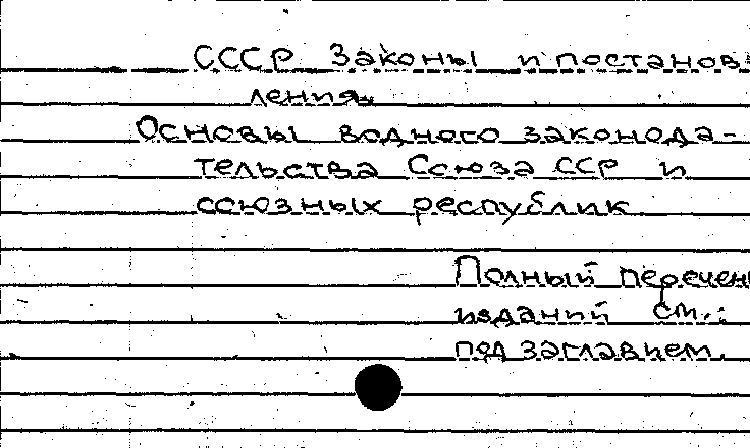 СССР Законы и постанов-
ления.
Основы водного законода-
тельства Союза ССР и
союзных республик
Полный перечен
изданий см.:
под заглавием.